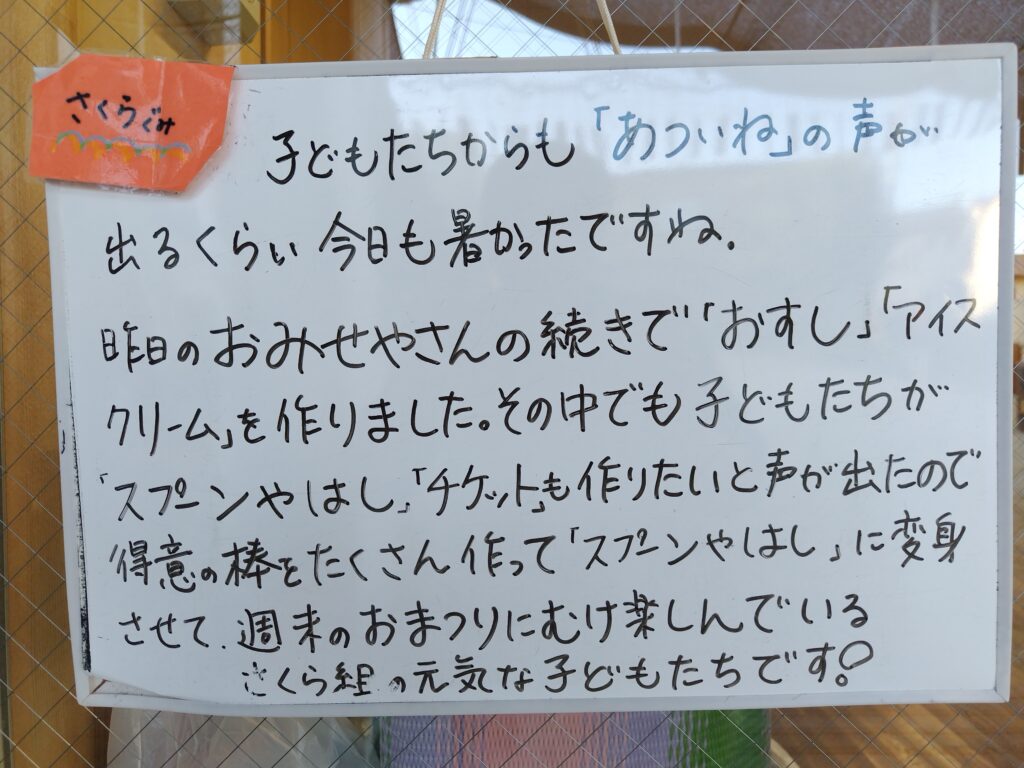 さくらぐみ
子どもたちからも「あついね」の声が
出るくらい今日も暑かったですね.
昨日のおみせやさんの続きで「おすし」「アイス
クリーム」を作りました。その中でも子どもたちが
「スプーンやはし」「チケット」も作りたいと声が出たので
得意の棒をたくさん作って「スプーンやはし」に変身
させて、週末のおまつりにむけ楽しんでいる
さくら組の元気な子どもたちです!